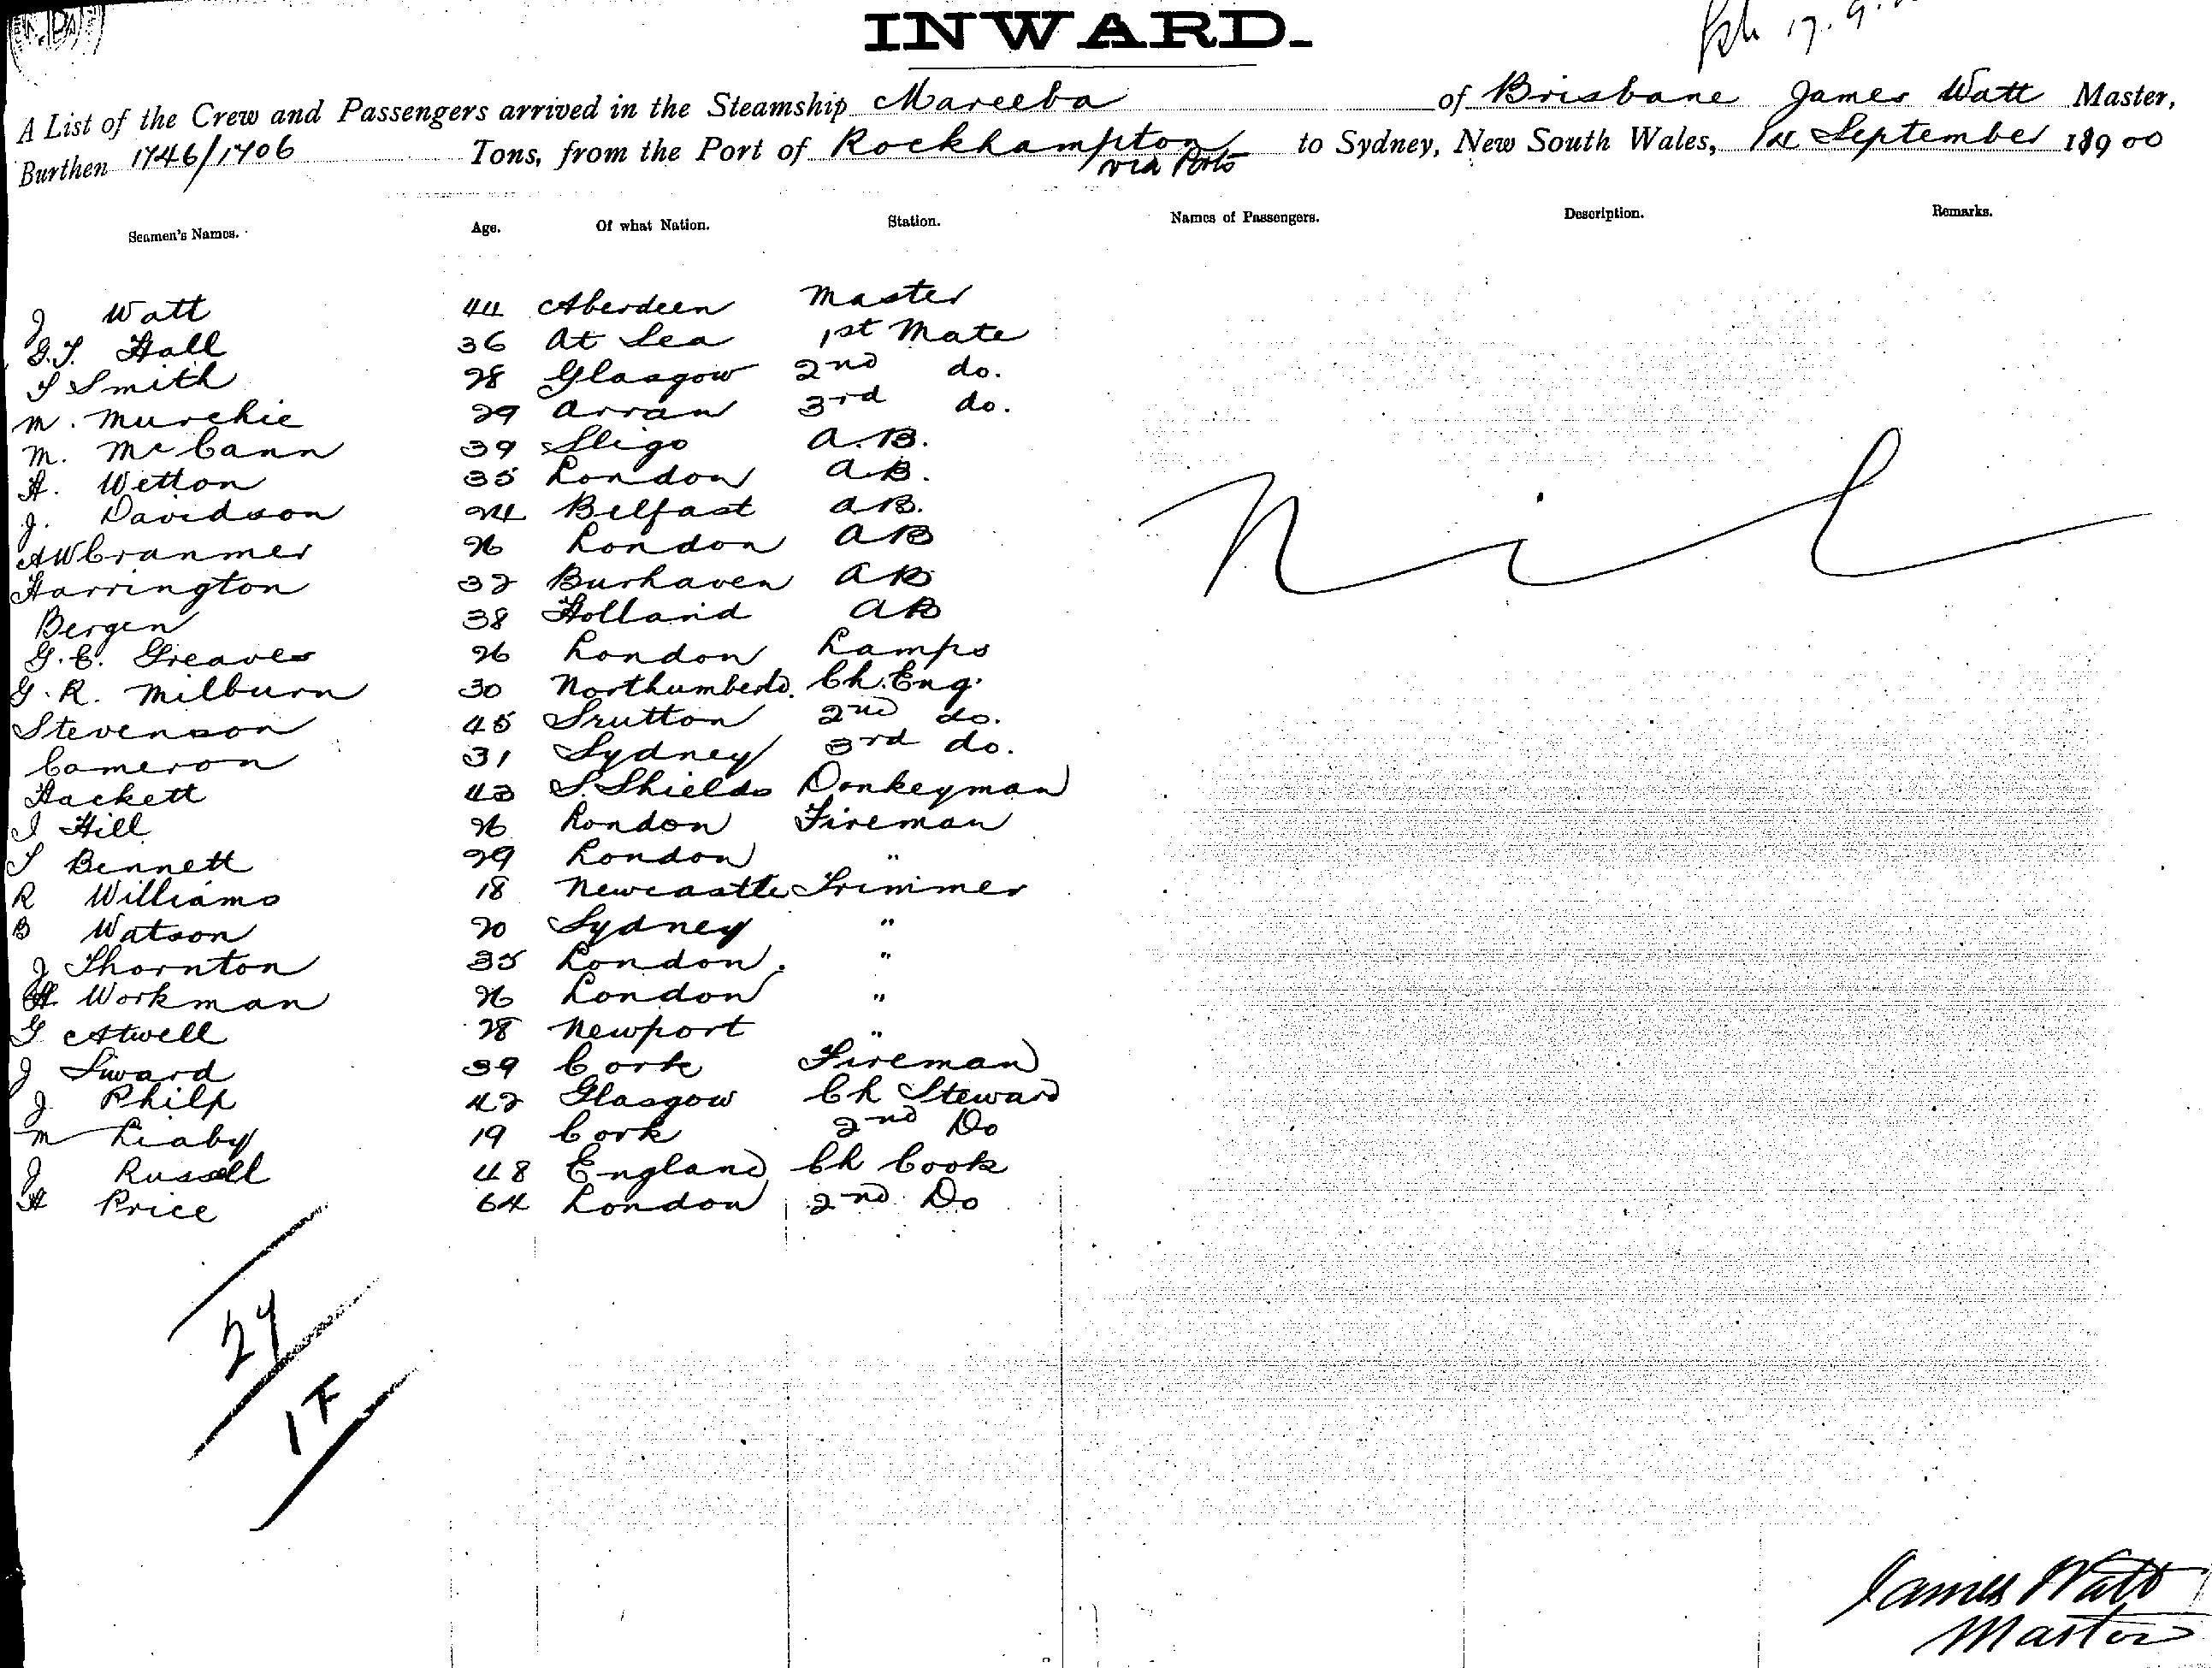 INWARD.
17.9.
A List of the Crew and Passengers arrived in the Steamship Mareeba of Brisbane James Watt Master,
Burthen 1746/1706 Tons, from the Port of Rockhampton via Ports to Sydney, New South Wales, 14 September 1900
Seamen's Names. Age. Of what Nation. Station. Names of Passengers. Description. Remarks.
J Watt 44 Aberdeen Master
G.T. Hall 36 At Sea 1st Mate
T Smith 28 Glasgow 2nd do.
M. Murchie 29 Arran 3rd do.
M. McCann 39 Sligo A.B.
H. Wetton 35 London A.B.
J. Davidson 24 Belfast A.B.
AW Cranmer 26 London AB
Harrington 32 Burhaven AB
Bergen 38 Holland AB
G.C. Greaves 26 London Lamps
G.R. Milburn 30 Northumberld. Ch. Eng.
Stevenson 45 Srutton 2nd do.
Cameron 31 Sydney 3rd do.
Hackett 43 S. Shields Donkeyman
J Hill 26 London Fireman
T Bennett 29 London "
R Williams 18 Newcastle Trimmer
B Watson 20 Sydney "
J Thornton 35 London. "
H. Workman 26 London "
G Atwell 28 Newport "
J Siward 39 Cork Fireman
J. Philp 42 Glasgow Ch Steward
M Liaby 19 Cork 2nd Do
J Russell 48 England Ch Cook
H Price 64 London 2nd Do
Nil
27
1F
James Watt
Master